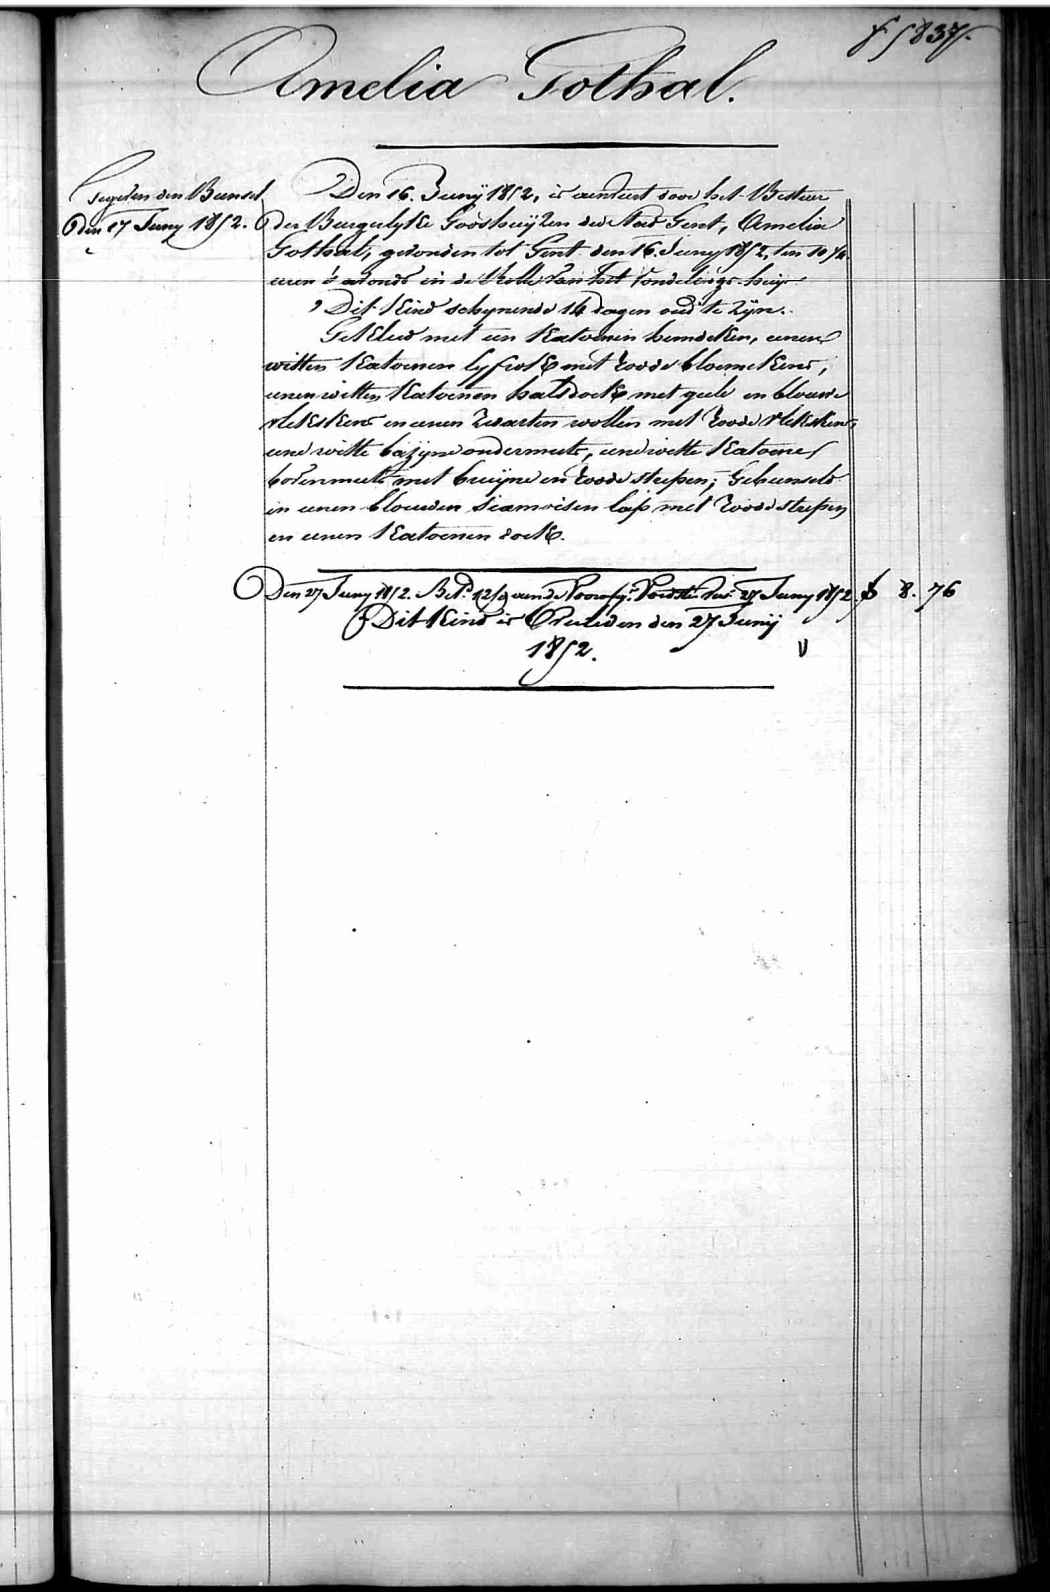 f 5837.
Amelia Gothal.
Gegeven den Bunsel
den 17 Juny 1852.
Den 16. Junij 1852, is aenveert door het Bestuer
der Burgerlyke Godshuijzen der Stad Gent, Amelia
Gothal, gevonden tot Gent den 16. Juny 1852, ten 10 1/4
uren 's avonds in de Rolle van het vondelings-huijs
Dit Kind schynende 14 dagen oud te zyn.
Gekleed met een Katoenen hemdeken, eenen
witten Katoenen lyfrok met roode bloemekens,
eenen witten Katoenen halsdoek met geele en blauwe
vlekskens en eenen zwarten wollen met roode vlekskens
eene witte bazyne ondermuts, eene witte Katoene
bovenmuts met bruyne en roode strepen; Gebunseld
in eenen blauwen siamoisen lap met roode strepen
en eenen Katoenen doek.
Den 27 Juny 1852. Bet. aen de 27 Juny 1852. 8. 76
Dit Kind is Overleden den 27 Junij
1852.